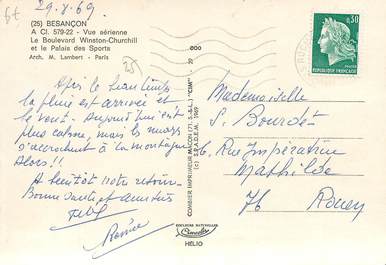 6t
29.8.69
(25) BESANÇON
A Cl. 579-22 - Vue aérienne
Le Boulevard Winston-Churchill
et le Palais des Sports
Arch. M. Lambert - Paris
25
Après le beau temps
la pluie est arrivée et
le vent. Aujourd'hui est
plus calme, mais les nuages
s'accrochent à la montagne
Alors!!
A bientôt notre retour
Bonne santé et amitiés
Renée
COMBIER IMPRIMEUR MACON (71. S.-&-L.) "CIM"
(c) S.P.A.D.E.M. 1969
COULEURS NATURELLES
HELIO
0,30
REPUBLIQUE FRANÇAISE
Mademoiselle
S. Bourdet
6, Rue Impératrice
Mathilde
76 Rouen